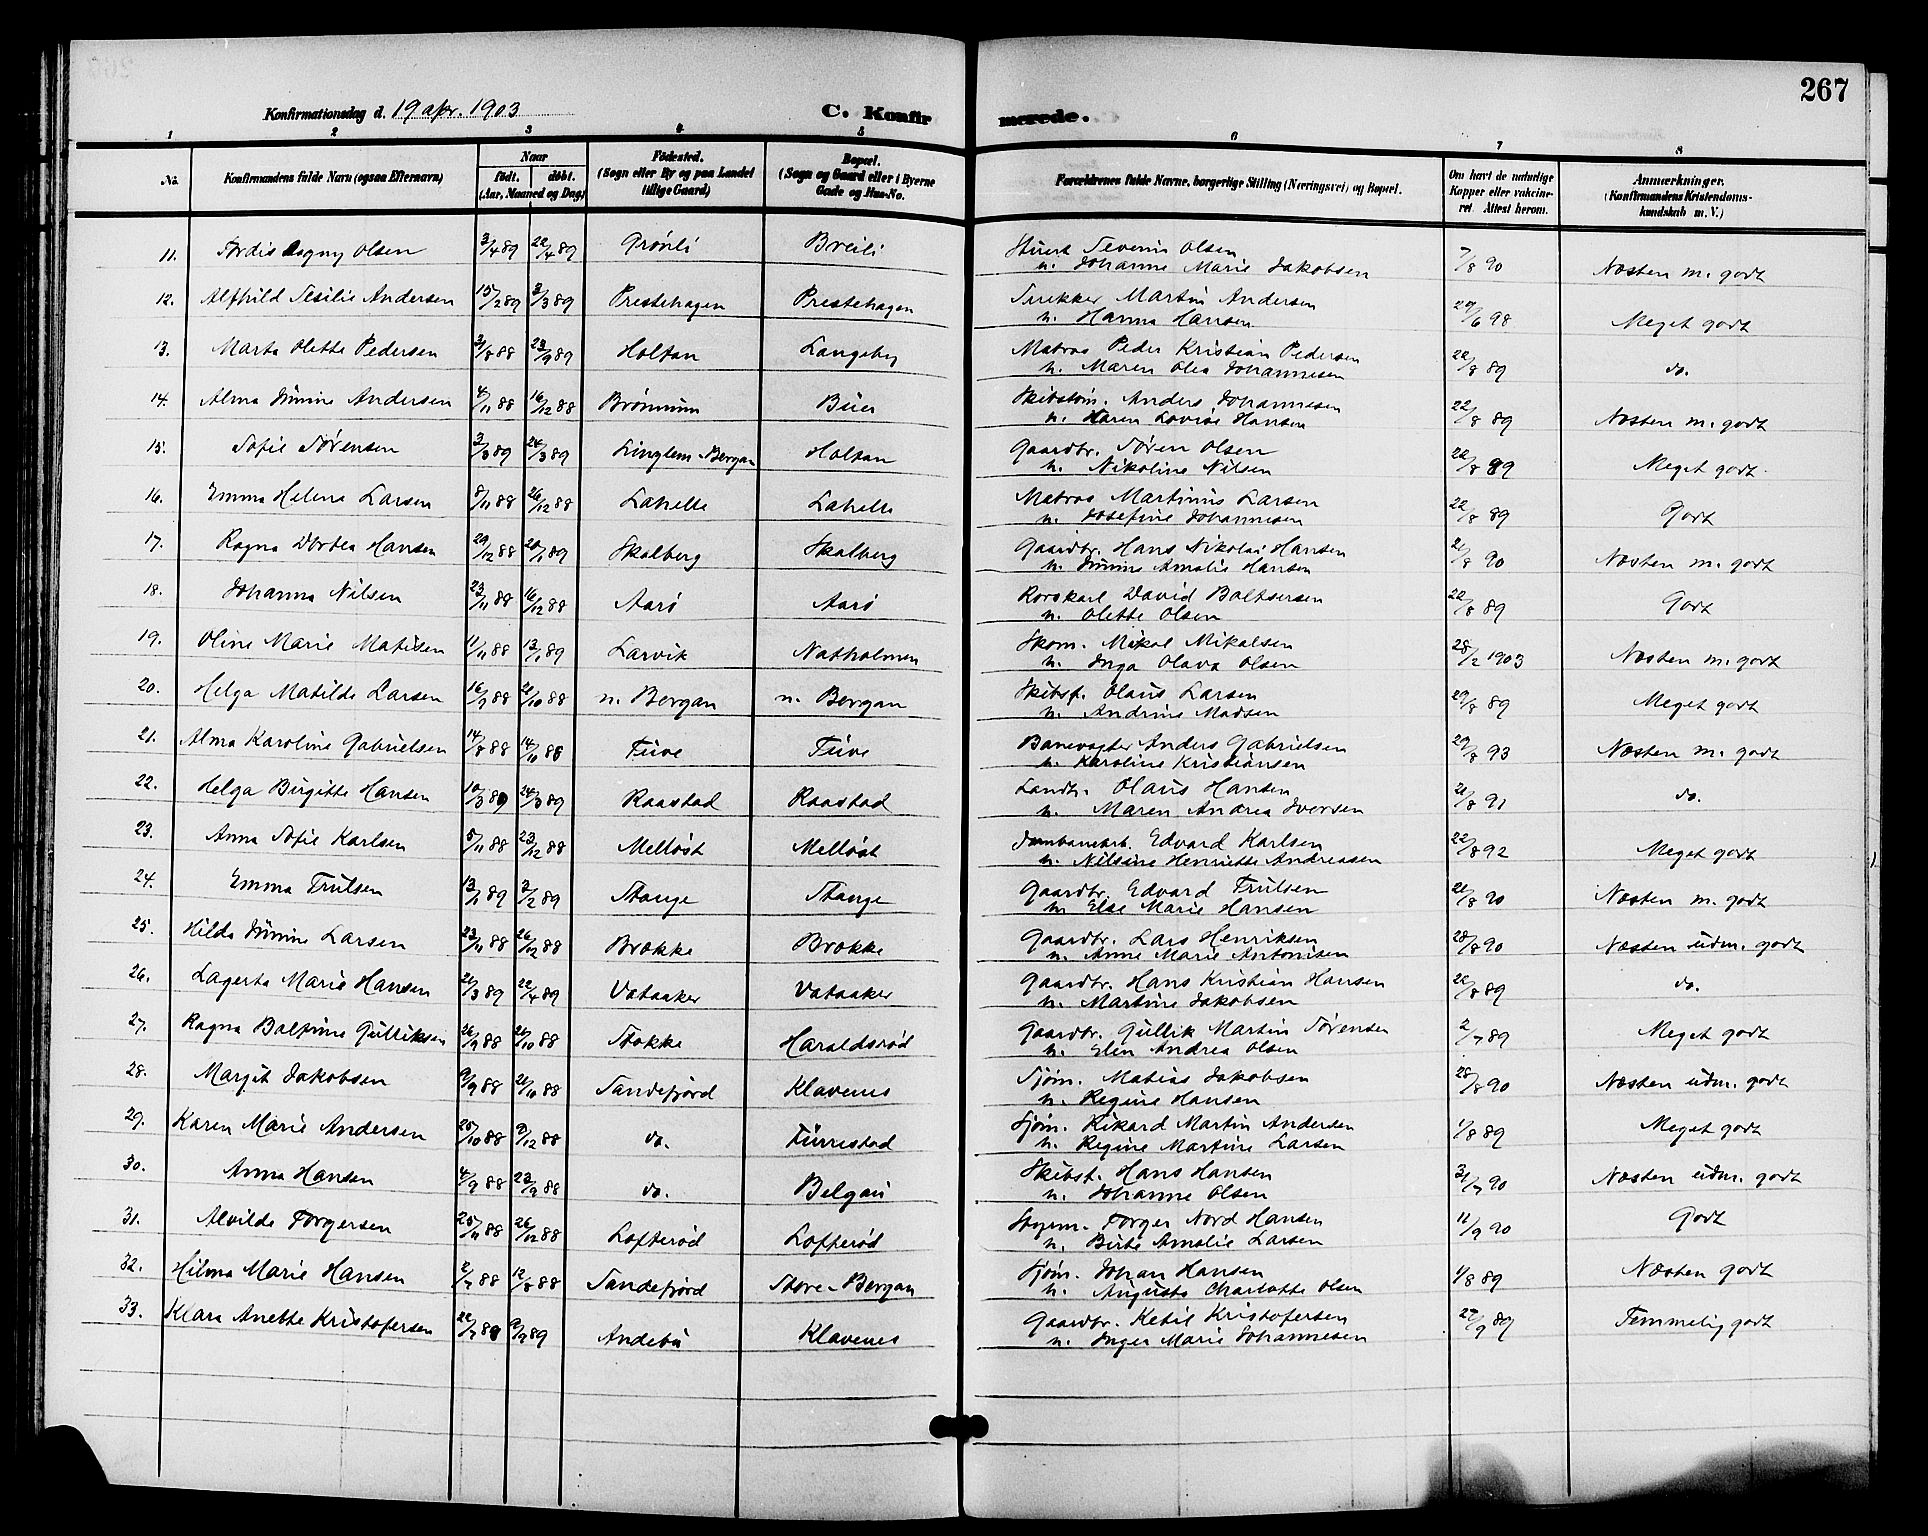 267
Konfirmationsdag d. 19 apr. 1903 C. Konfirmerede.
1 2 3 4 5 6 7 8
No. Konfirmandens fulde Navn (ogsaa Efternavn) Naar födt. döbt. (Aar, Maaned og Dag) Födested. (Sogn eller By og paa Landet tillige Gaard) Bopæl. (Sogn og Gaard eller i Byerne Gade og Hus-No. Forældrenes fulde Navne, borgerlige Stilling (Næringsvei) og Bopæl. Om havt de naturlige Kopper eller vakcineret. Attest herom. Anmærkninger. (Konfirmandens Kristendomskundskab m. V.)
11. Tordis Aagny Olsen 3/4 89 22/4 89 Grönli Breili Stuert Severin Olsen 7/8 90 Næsten m. godt
u. Johanne Marie Jakobsen
12. Alfhild Sesilie Andersen 15/2 89 3/3 89 Prestehagen Prestehagen Snekker Martin Andersen 29/6 98 Meget godt
u. Hanna Hansen
13. Marta Olette Pedersen 31/8 88 23/9 89 Holtan Langeby Matros Peder Kristian Pedersen 22/8 89 do.
u. Maren Olea Johannesen
14. Alma Jümine Andersen 4/11 88 16/12 88 Brönnum Buer Skibstöm. Anders Johannesen 22/8 89 Næsten m. godt
u. Karen Lovise Hansen
15. Sofie Sørensen 3/3 89 24/3 89 Linglem-Bergan Holtan Gaardbr. Søren Olsen 22/8 89 Meget godt.
u. Nikoline Nilsen
16. Emma Helene Larsen 8/11 88 26/12 88 Lahelle Lahelle Matros Martinus Larsen 22/8 89 Godt
u. Josefine Johannesen
17. Ragna Dortea Hansen 29/12 88 20/1 89 Skalberg Skalberg Gaardbr. Hans Nikolai Hansen 21/8 90 Næsten m. godt
u. Jümine Amalie Hansen
18. Johanna Nilsen 23/11 88 16/12 88 Aarö Aarö Rorskarl David Baltsersen 22/8 89 Godt
u. Olette Olsen
19. Oline Marie Matisen 11/11 88 13/1 89 Larvik Natholmen Skom. Mikal Mikalsen 28/2 1903 Næsten m. godt
u. Inga Olava Olsen
20. Helga Matilde Larsen 16/9 88 21/10 88 n. Bergan n. Bergan Skibsf. Olaus Larsen 29/8 89 Meget godt
u. Andrine Madsen
21. Alma Karoline Gabrielsen 14/8 88 14/10 88 Tuve Tuve Banevogter Anders Gabrielsen 29/8 93 Næsten m. godt
u. Karoline Kristiansen
22. Helga Birgitte Hansen 10/3 89 24/3 89 Raastad Raastad Landh. Olaus Hansen 21/8 91 do.
u. Maren Andrea Iversen
23. Anna Sofie Karlsen 5/11 88 23/12 88 Melløst Melløst Jernbanearb. Edvard Karlsen 22/8 92 Meget godt
u. Nilsine Henriette Andreasen
24. Emma Trulsen 13/1 89 3/2 89 Stange Stange Gaardbr. Edvard Trulsen 21/8 90 Næsten m. godt
u. Else Marie Hansen
25. Hilda Jümine Larsen 23/11 88 26/12 88 Brække Brække Gaardbr. Lars Henriksen 28/8 90 Næsten udm. godt
u. Anne Marie Antonisen
26. Lagerta Marie Hansen 21/3 89 22/4 89 Vataaker Vataaker Gaardbr. Hans Kristian Hansen 22/8 89 do.
u. Martine Jakobsen
27. Ragna Balfine Gulliksen 26/9 88 21/10 88 Stokke Haraldsrød Gaardbr. Gullik Martin Sørensen 2/7 89 Meget godt
u. Elen Andrea Olsen
28. Margit Jakobsen 9/9 88 21/10 88 Sandefjord Klavenes Sjöm. Matias Jakobsen 28/8 90 Næsten udm. godt
u. Regine Hansen
29. Karen Marie Andersen 20/10 88 9/12 88 do. Furrestad Sjöm. Rikard Martin Andersen 1/8 89 Meget godt
u. Regine Martine Larsen
30. Anna Hansen 4/9 88 23/9 88 do. Belgau Skibst. Hans Hansen 31/7 90 Næsten udm. godt
u. Johanne Olsen
31. Alvilde Torgersen 25/11 88 26/12 88 Lofterød Lofterød Styrm. Torger Nord Hansen 11/9 90 Godt
u. Birte Amalie Larsen
32. Hilma Marie Hansen 2/7 88 12/8 88 Sandefjord Store-Bergan Sjöm. Johan Hansen 1/8 89 Næsten godt
u. Augusta Charlotte Olsen
33. Klara Anette Kristofersen 22/7 89 9/9 89 Andebu Klavenes Gaardbr. Ketil Kristofersen 27/9 89 Temmelig godt
u. Inger Marie Johannesen